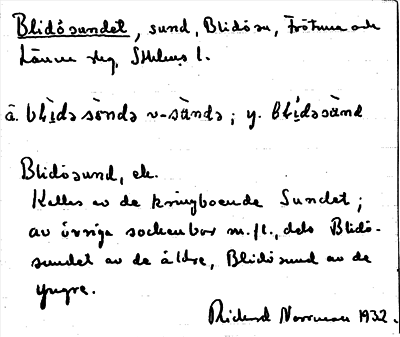 Blidösundet, sund, Blidö sn, Frötuna och
Länna skg, Sthlms l.
ä. blìdəsồndə v -sùndə; y. blídəsùnd
Blidösund, ek.
Kallas av de kringboende Sundet;
av övriga sockenbor m.fl., dels Blidö-
sundet av de äldre, Blidösund av de
yngre.
Rickard Norrman 1932.